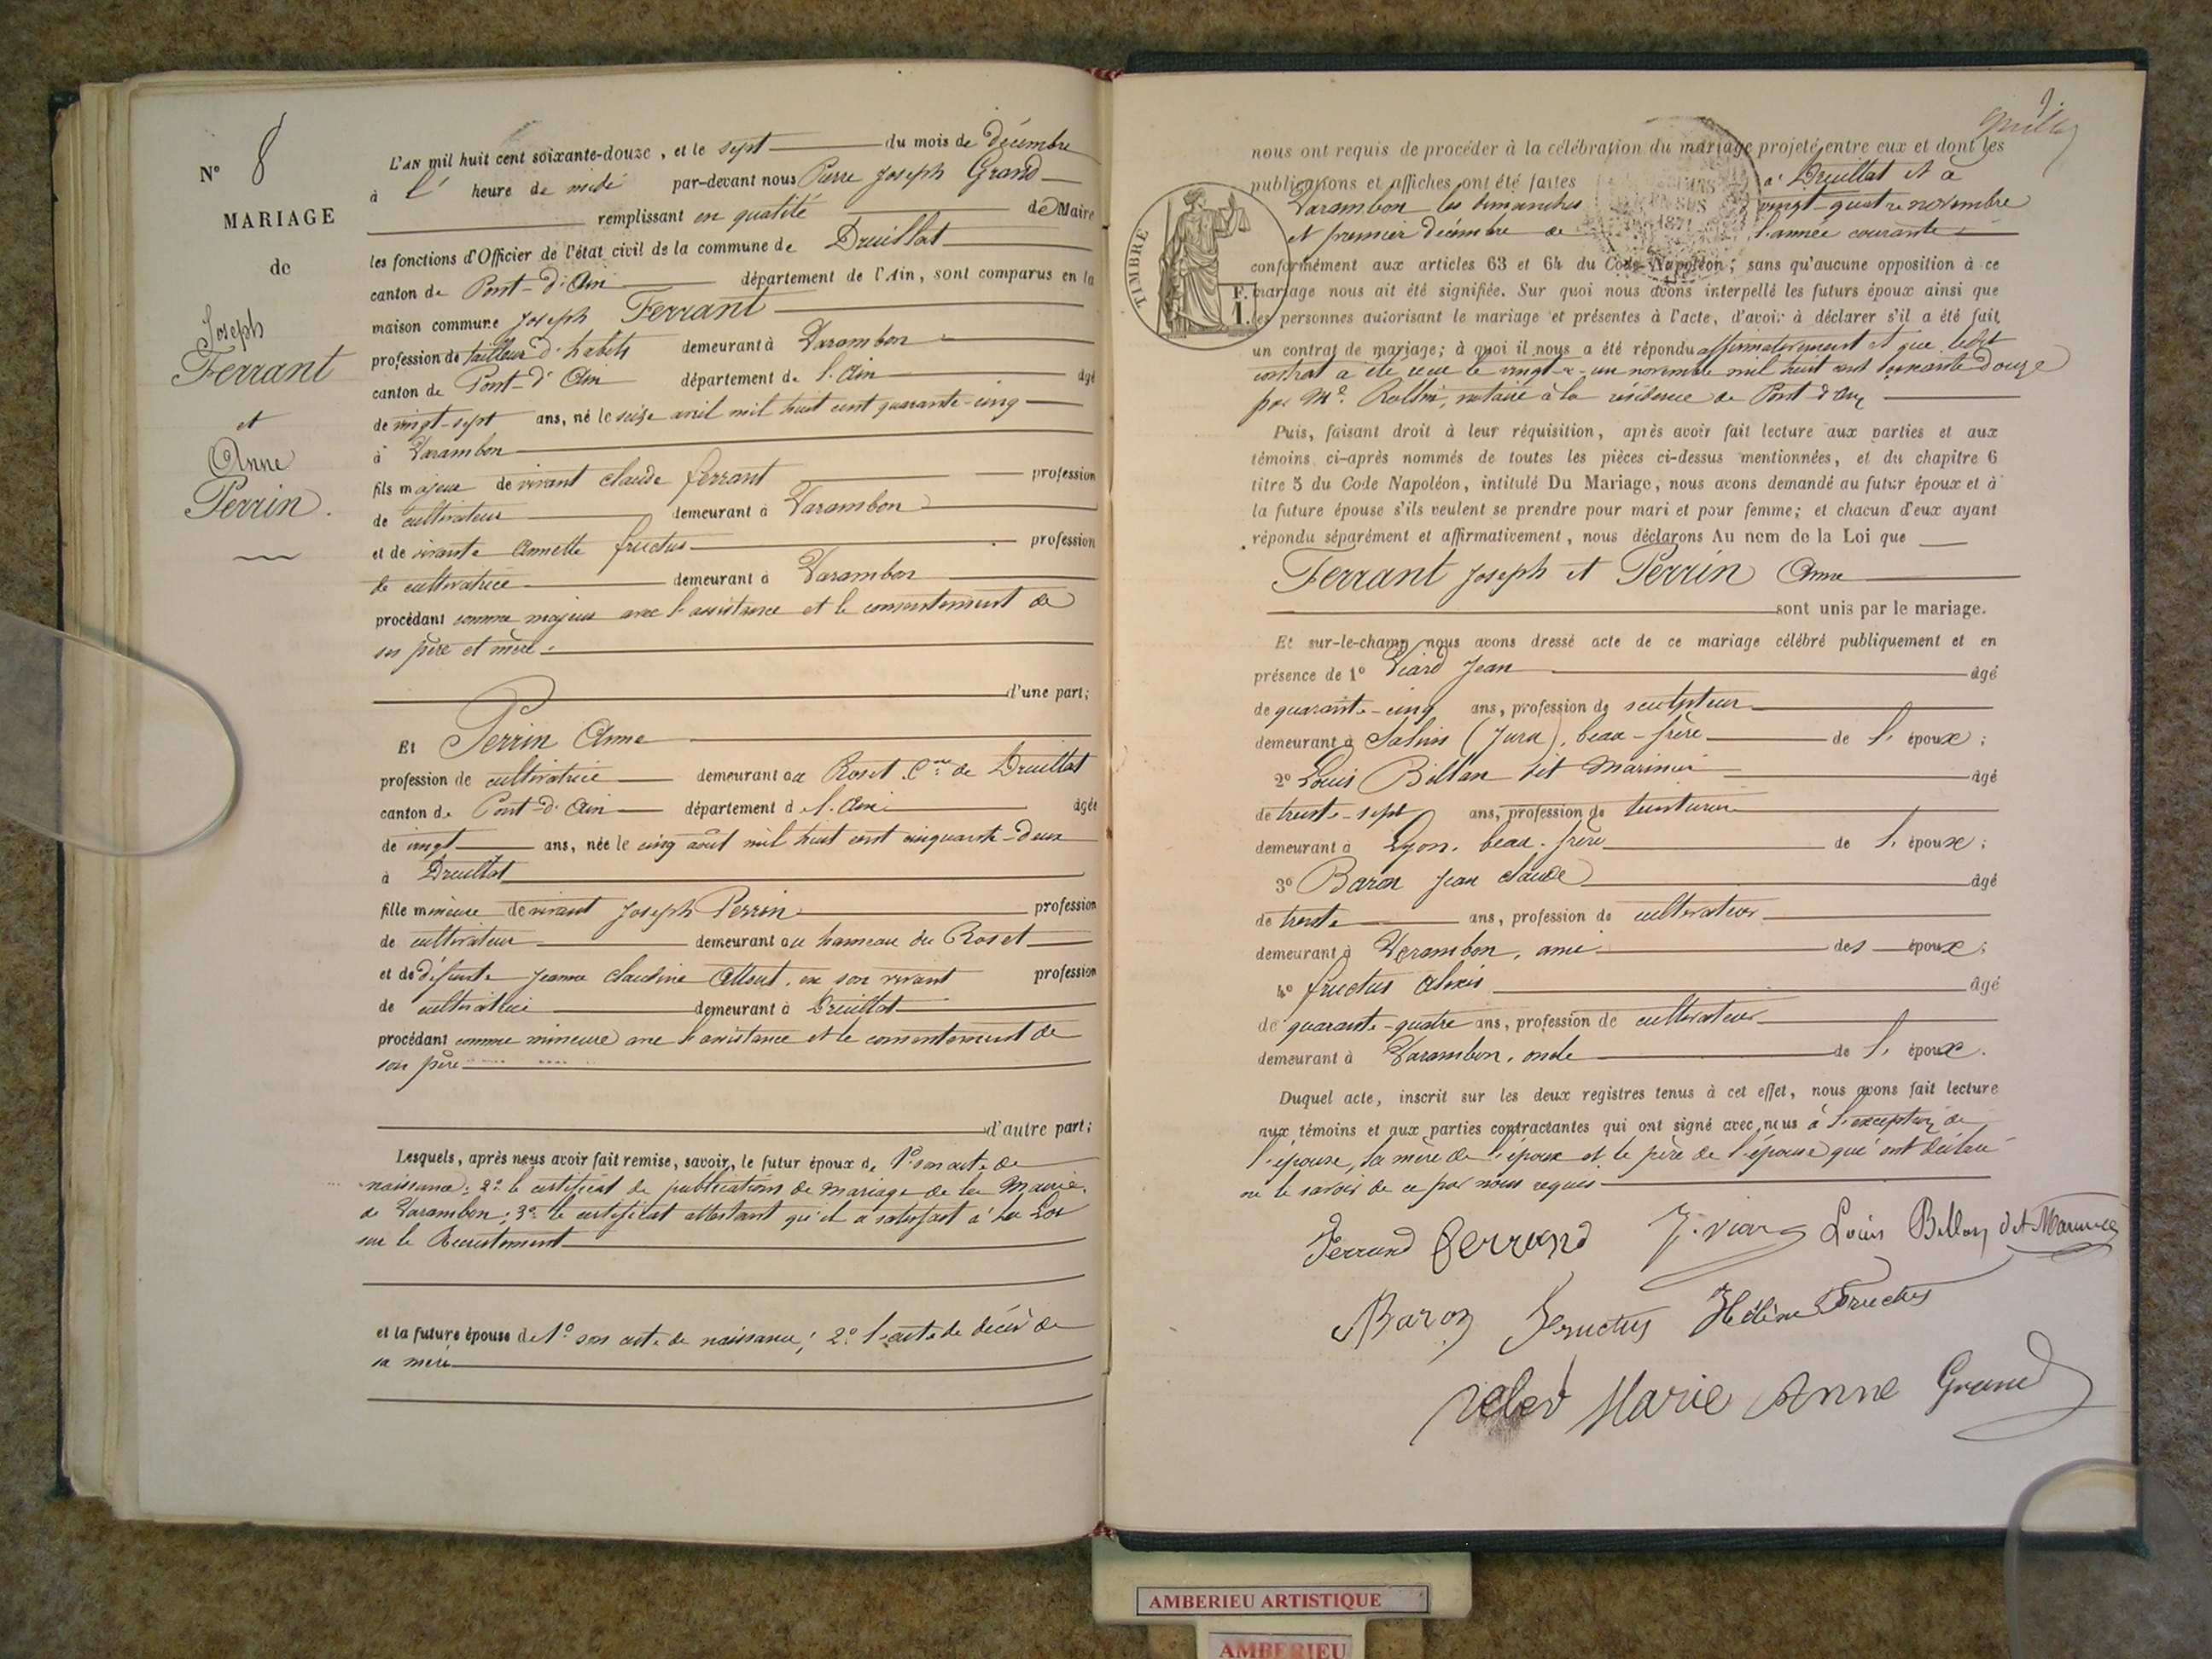 N° 8
MARIAGE
de
Joseph
Ferrant
et
Anne
Perrin.
L'AN mil huit cent soixante-douze, et le sept du mois de décembre
à l' heure de midi par-devant nous Pierre Joseph Grand
remplissant en qualité de Maire
les fonctions d'Officier de l'état civil de la commune de Druillat
canton de Pont-d'Ain département de l'Ain, sont comparus en la
maison commune Joseph Ferrant
profession de tailleur d'habits demeurant à Varambon
canton de Pont-d'Ain département de l'Ain âgé
de vingt-sept ans, né le seize avril mil huit cent quarante-cinq
à Varambon
fils majeur de vivant Claude ferrant profession
de cultivateur demeurant à Varambon
et de vivante Annette fructus profession
de cultivatrice demeurant à Varambon
procédant comme majeur avec l'assistance et le consentement de
ses père et mère
d'une part;
Et Perrin Anne
profession de cultivatrice demeurant au Roset Cne de Druillat
canton de Pont-d'Ain département d l'Ain âgée
de vingt ans, née le cinq août mil huit cent cinquante-deux
à Druillat
fille mineure de vivant Joseph Perrin profession
de cultivateur demeurant au hameau du Roset
et de défunte Jeanne Claudine en son vivant profession
de cultivatrice demeurant à Druillat
procédant comme mineure avec l'assistance et le consentement de
son père
d'autre part;
Lesquels, après nous avoir fait remise, savoir, le futur époux de 1° son acte de
naissance; 2° le certificat de publications de mariage de la Mairie
de Varambon; 3° le certificat attestant qu'il a satisfait à la Loi
sur le Recrutement
et la future épouse de 1° son acte de naissance; 2° l'acte de décès de
sa mère
nous ont requis de procéder à la célébration du mariage projeté entre eux et dont les
publications et affiches ont été faites à Druillat et à
Varambon les dimanches vingt-quatre novembre
et premier décembre de l'année courante
TIMBRE
conformément aux articles 63 et 64 du Code Napoléon; sans qu'aucune opposition à ce
mariage nous ait été signifiée. Sur quoi nous avons interpellé les futurs époux ainsi que
les personnes autorisant le mariage et présentes à l'acte, d'avoir à déclarer s'il a été fait
un contrat de mariage; à quoi il nous a été répondu affirmativement et que ledit
contrat a été reçu le vingt-et-un novembre mil huit cent soixante-douze
par Me Rollin, notaire à la résidence de Pont d'Ain
Puis, faisant droit à leur réquisition, après avoir fait lecture aux parties et aux
témoins ci-après nommés de toutes les pièces ci-dessus mentionnées, et du chapitre 6
titre 5 du Code Napoléon, intitulé Du Mariage, nous avons demandé au futur époux et à
la future épouse s'ils veulent se prendre pour mari et pour femme; et chacun d'eux ayant
répondu séparément et affirmativement, nous déclarons Au nom de la Loi que
Ferrant Joseph et Perrin Anne
sont unis par le mariage.
Et sur-le-champ nous avons dressé acte de ce mariage célébré publiquement et en
présence de 1° Viard Jean âgé
de quarante-cinq ans, profession de sculpteur
demeurant à Salins (Jura), beau-frère de l' époux;
2° Louis Billan dit Marinier âgé
de trente-sept ans, profession de teinturier
demeurant à Lyon, beau-frère de l' époux;
3° Baron Jean Claude âgé
de trente ans, profession de cultivateur
demeurant à Varambon, ami des époux;
4° fructus Alexis âgé
de quarante-quatre ans, profession de cultivateur
demeurant à Varambon, oncle de l' époux.
Duquel acte, inscrit sur les deux registres tenus à cet effet, nous avons fait lecture
aux témoins et aux parties contractantes qui ont signé avec nous à l'exception de
l'épouse, la mère de l'époux et le père de l'épouse qui ont déclaré
ne le savoir de ce par nous requis
Ferrand ferrand J. Viard Louis Billan dit Marinier
Baron Fructus Hélène Fructus
Marie Anne Grand
AMBERIEU ARTISTIQUE
AMBERIEU